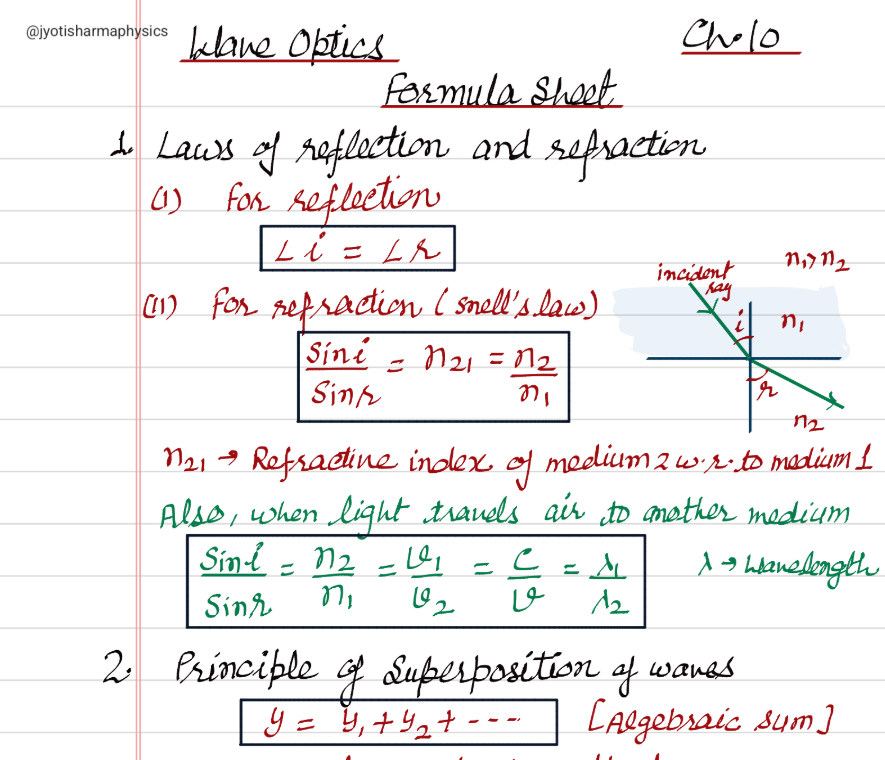 @jyotisharmaphysics
Wave Optics
Ch.10
Formula Sheet
1. Laws of reflection and refraction
(I) For reflection
∠i = ∠r
(II) For refraction (snell's law)
incident ray
n₁ > n₂
i
n₁
r
n₂
Sin i / Sin r = n₂₁ = n₂ / n₁
n₂₁ → Refractive index of medium 2 w.r.to medium 1
Also, when light travels air to another medium
Sin i / Sin r = n₂ / n₁ = v₁ / v₂ = c / v = λ₁ / λ₂
λ → Wavelength
2. Principle of Superposition of waves
y = y₁ + y₂ + ---- [Algebraic sum]